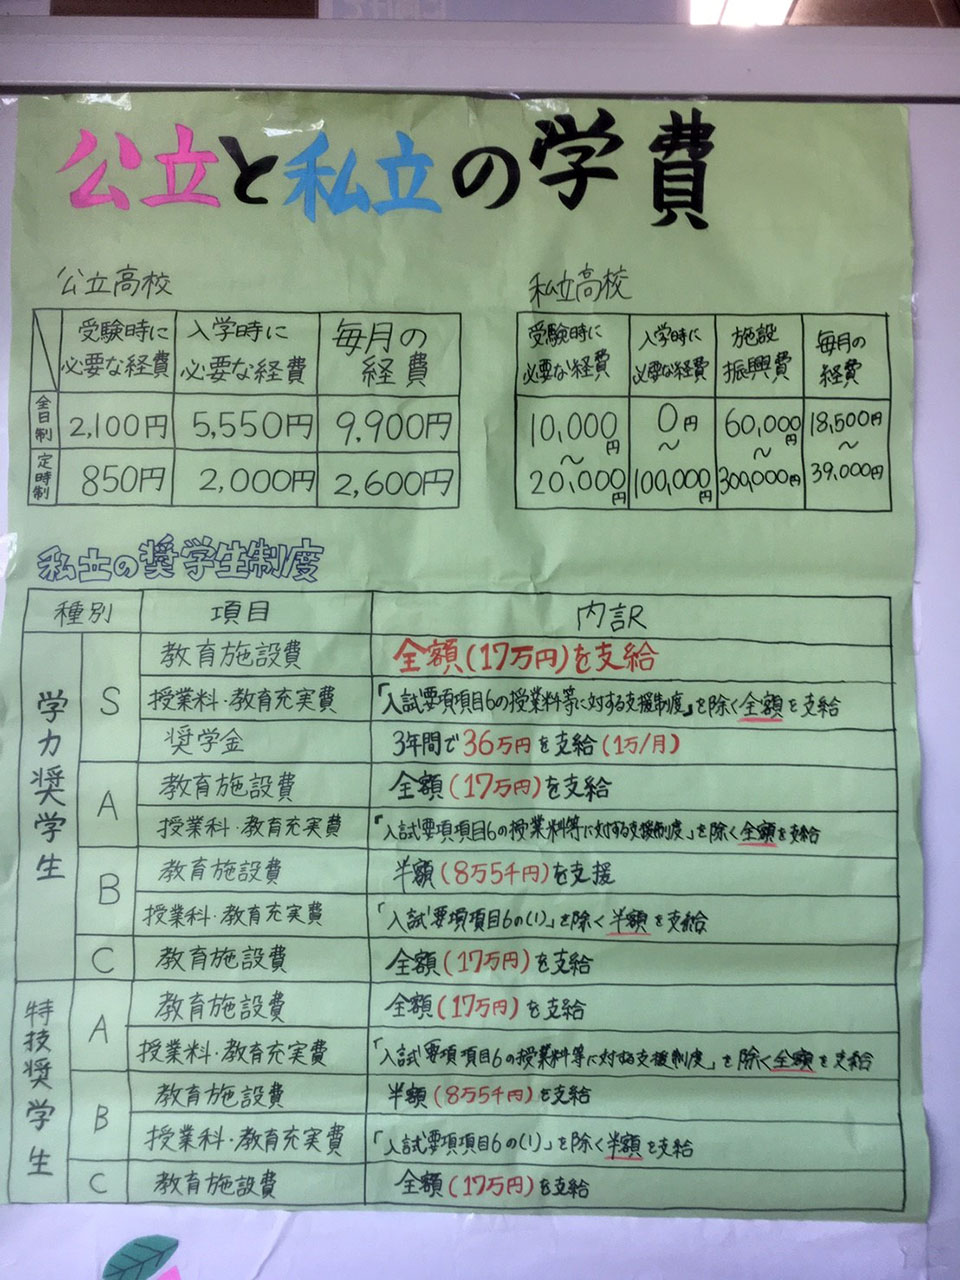 公立と私立の学費
公立高校
受験時に必要な経費 入学時に必要な経費 毎月の経費
全日制 2,100円 5,550円 9,900円
定時制 850円 2,000円 2,600円
私立高校
受験時に必要な経費 入学時に必要な経費 施設振興費 毎月の経費
10,000円～20,000円 0円～100,000円 60,000円～300,000円 18,500円～39,000円
私立の奨学生制度
種別 項目 内訳
学力奨学生
S 教育施設費 全額(17万円)を支給
授業料・教育充実費 「入試要項項目6の授業料等に対する支援制度」を除く全額を支給
奨学金 3年間で36万円を支給(1万/月)
A 教育施設費 全額(17万円)を支給
授業料・教育充実費 「入試要項項目6の授業料等に対する支援制度」を除く全額を支給
B 教育施設費 半額(8万5千円)を支援
授業料・教育充実費 「入試要項項目6の(1)」を除く半額を支給
C 教育施設費 全額(17万円)を支給
特技奨学生
A 教育施設費 全額(17万円)を支給
授業料・教育充実費 「入試要項項目6の授業料等に対する支援制度」を除く全額を支給
B 教育施設費 半額(8万5千円)を支給
授業料・教育充実費 「入試要項項目6の(1)」を除く半額を支給
C 教育施設費 全額(17万円)を支給